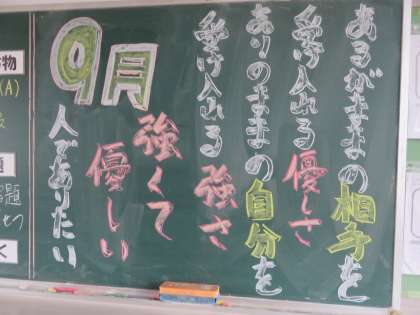 あるがままの相手を
受け入れる優しさ
ありのままの自分を
受け入れる強さ
9月
強くて
優しい
人でありたい
物
(A)
題
題
く